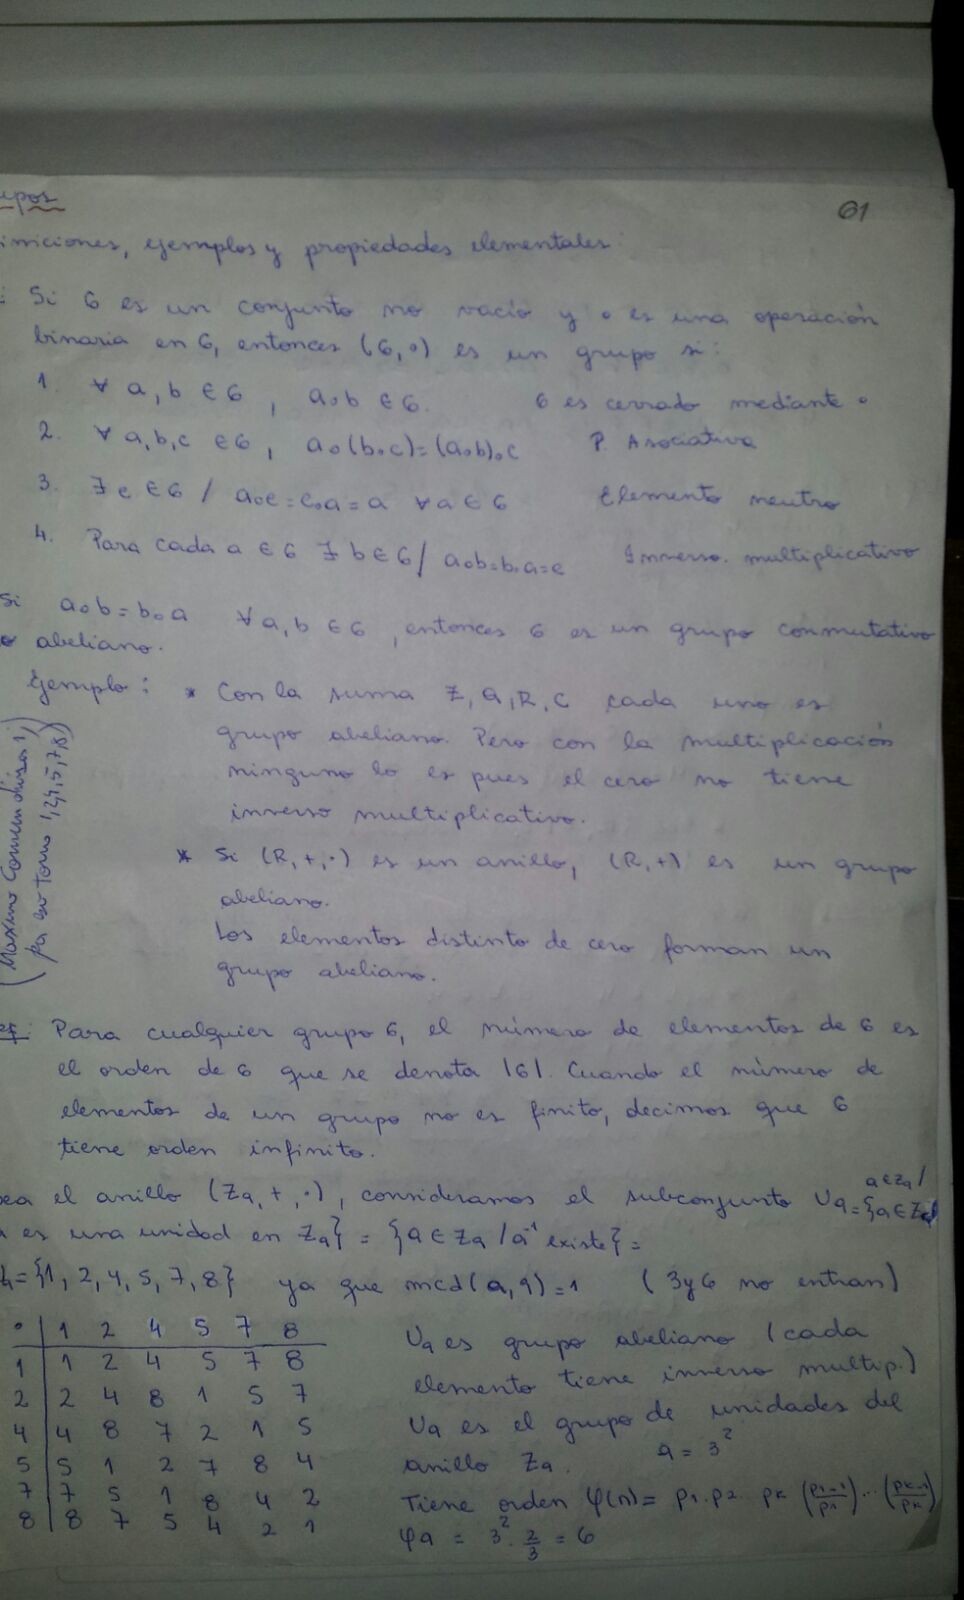 upos
61
iniciones, ejemplos y propiedades elementales:
: Si G es un conjunto no vacío y ∘ es una operación
binaria en G, entonces (G,∘) es un grupo si:
1. ∀ a,b ∈ G , a∘b ∈ G. G es cerrado mediante ∘
2. ∀ a,b,c ∈ G , a∘(b∘c)=(a∘b)∘c P. Asociativa
3. ∃ e ∈ G / a∘e=e∘a=a ∀ a ∈ G Elemento neutro
4. Para cada a ∈ G ∃ b ∈ G / a∘b=b∘a=e Inverso. multiplicativo
Si a∘b=b∘a ∀ a,b ∈ G , entonces G es un grupo conmutativo
o abeliano.
Ejemplo: * Con la suma Z, Q, R, C cada uno es
grupo abeliano. Pero con la multiplicación
ninguno lo es pues el cero no tiene
inverso multiplicativo.
* Si (R,+,·) es un anillo, (R,+) es un grupo
abeliano.
Los elementos distinto de cero forman un
grupo abeliano.
(Maximo Comun divisor 1,
por eso tomo 1,2,4,5,7,8)
ef: Para cualquier grupo G, el número de elementos de G es
el orden de G que se denota |G|. Cuando el número de
elementos de un grupo no es finito, decimos que G
tiene orden infinito.
ea el anillo (Z₉,+,·), consideramos el subconjunto U₉={a∈Z₉
a∈Z₉/
es una unidad en Z₉} = {a ∈ Z₉ / a⁻¹ existe} =
={1, 2, 4, 5, 7, 8} ya que mcd(a,9)=1 (3 y 6 no entran)
· | 1 2 4 5 7 8
1 | 1 2 4 5 7 8
2 | 2 4 8 1 5 7
4 | 4 8 7 2 1 5
5 | 5 1 2 7 8 4
7 | 7 5 1 8 4 2
8 | 8 7 5 4 2 1
U₉ es grupo abeliano (cada
elemento tiene inverso multip.)
U₉ es el grupo de unidades del
anillo Z₉. 9 = 3²
Tiene orden φ(n)= p₁.p₂ pk (p₁-1/p₁)...(pk-1/pk)
φ9 = 3². 2/3 = 6